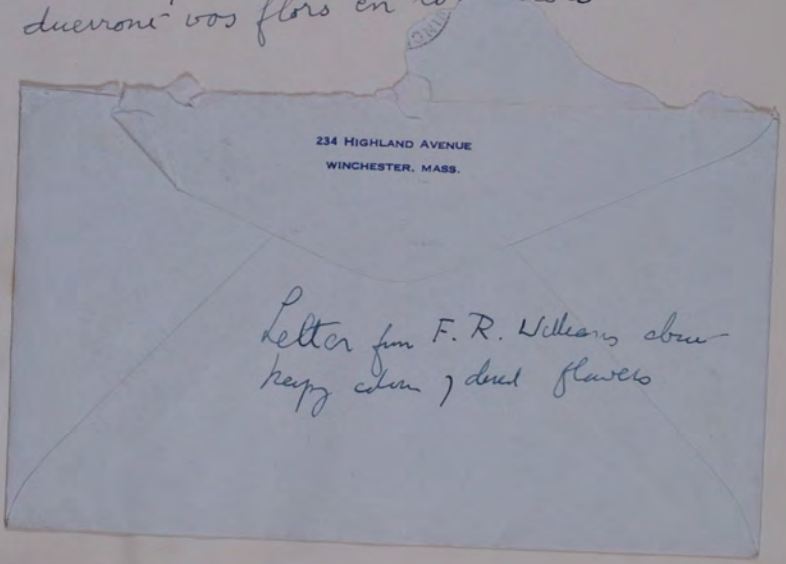 vos flors en
234 HIGHLAND AVENUE
WINCHESTER, MASS.
Letter from F. R. Williams about
keeping color of dried flowers